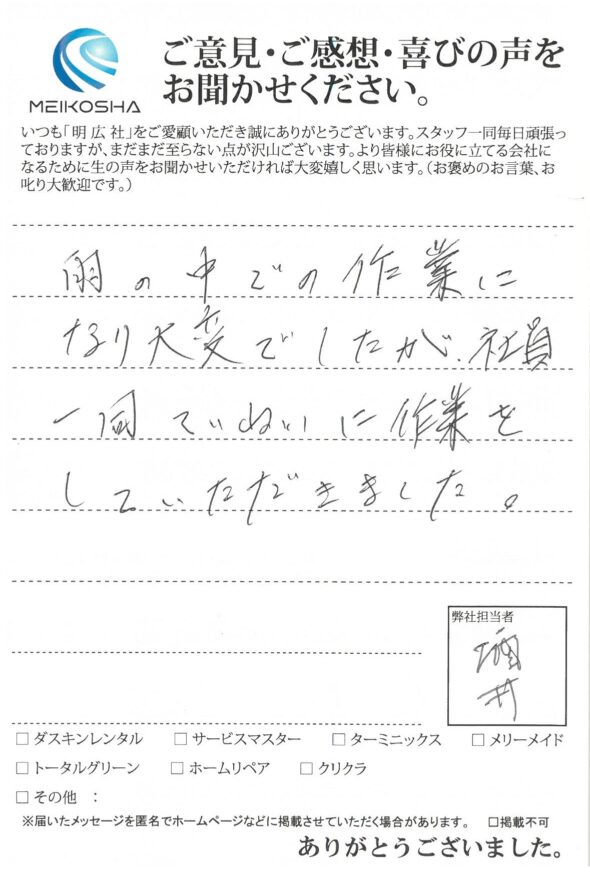 MEIKOSHA
ご意見・ご感想・喜びの声を
お聞かせください。
いつも「明広社」をご愛顧いただき誠にありがとうございます。スタッフ一同毎日頑張っ
ておりますが、まだまだ至らない点が沢山ございます。より皆様にお役に立てる会社に
なるために生の声をお聞かせいただければ大変嬉しく思います。（お褒めのお言葉、お
叱り大歓迎です。）
雨の中での作業に
なり大変でしたが、社員
一同ていねいに作業を
していただきました。
弊社担当者
酒
井
□ ダスキンレンタル □ サービスマスター □ ターミニックス □ メリーメイド
□ トータルグリーン □ ホームリペア □ クリクラ
□ その他 ：
※届いたメッセージを匿名でホームページなどに掲載させていただく場合があります。 □掲載不可
ありがとうございました。